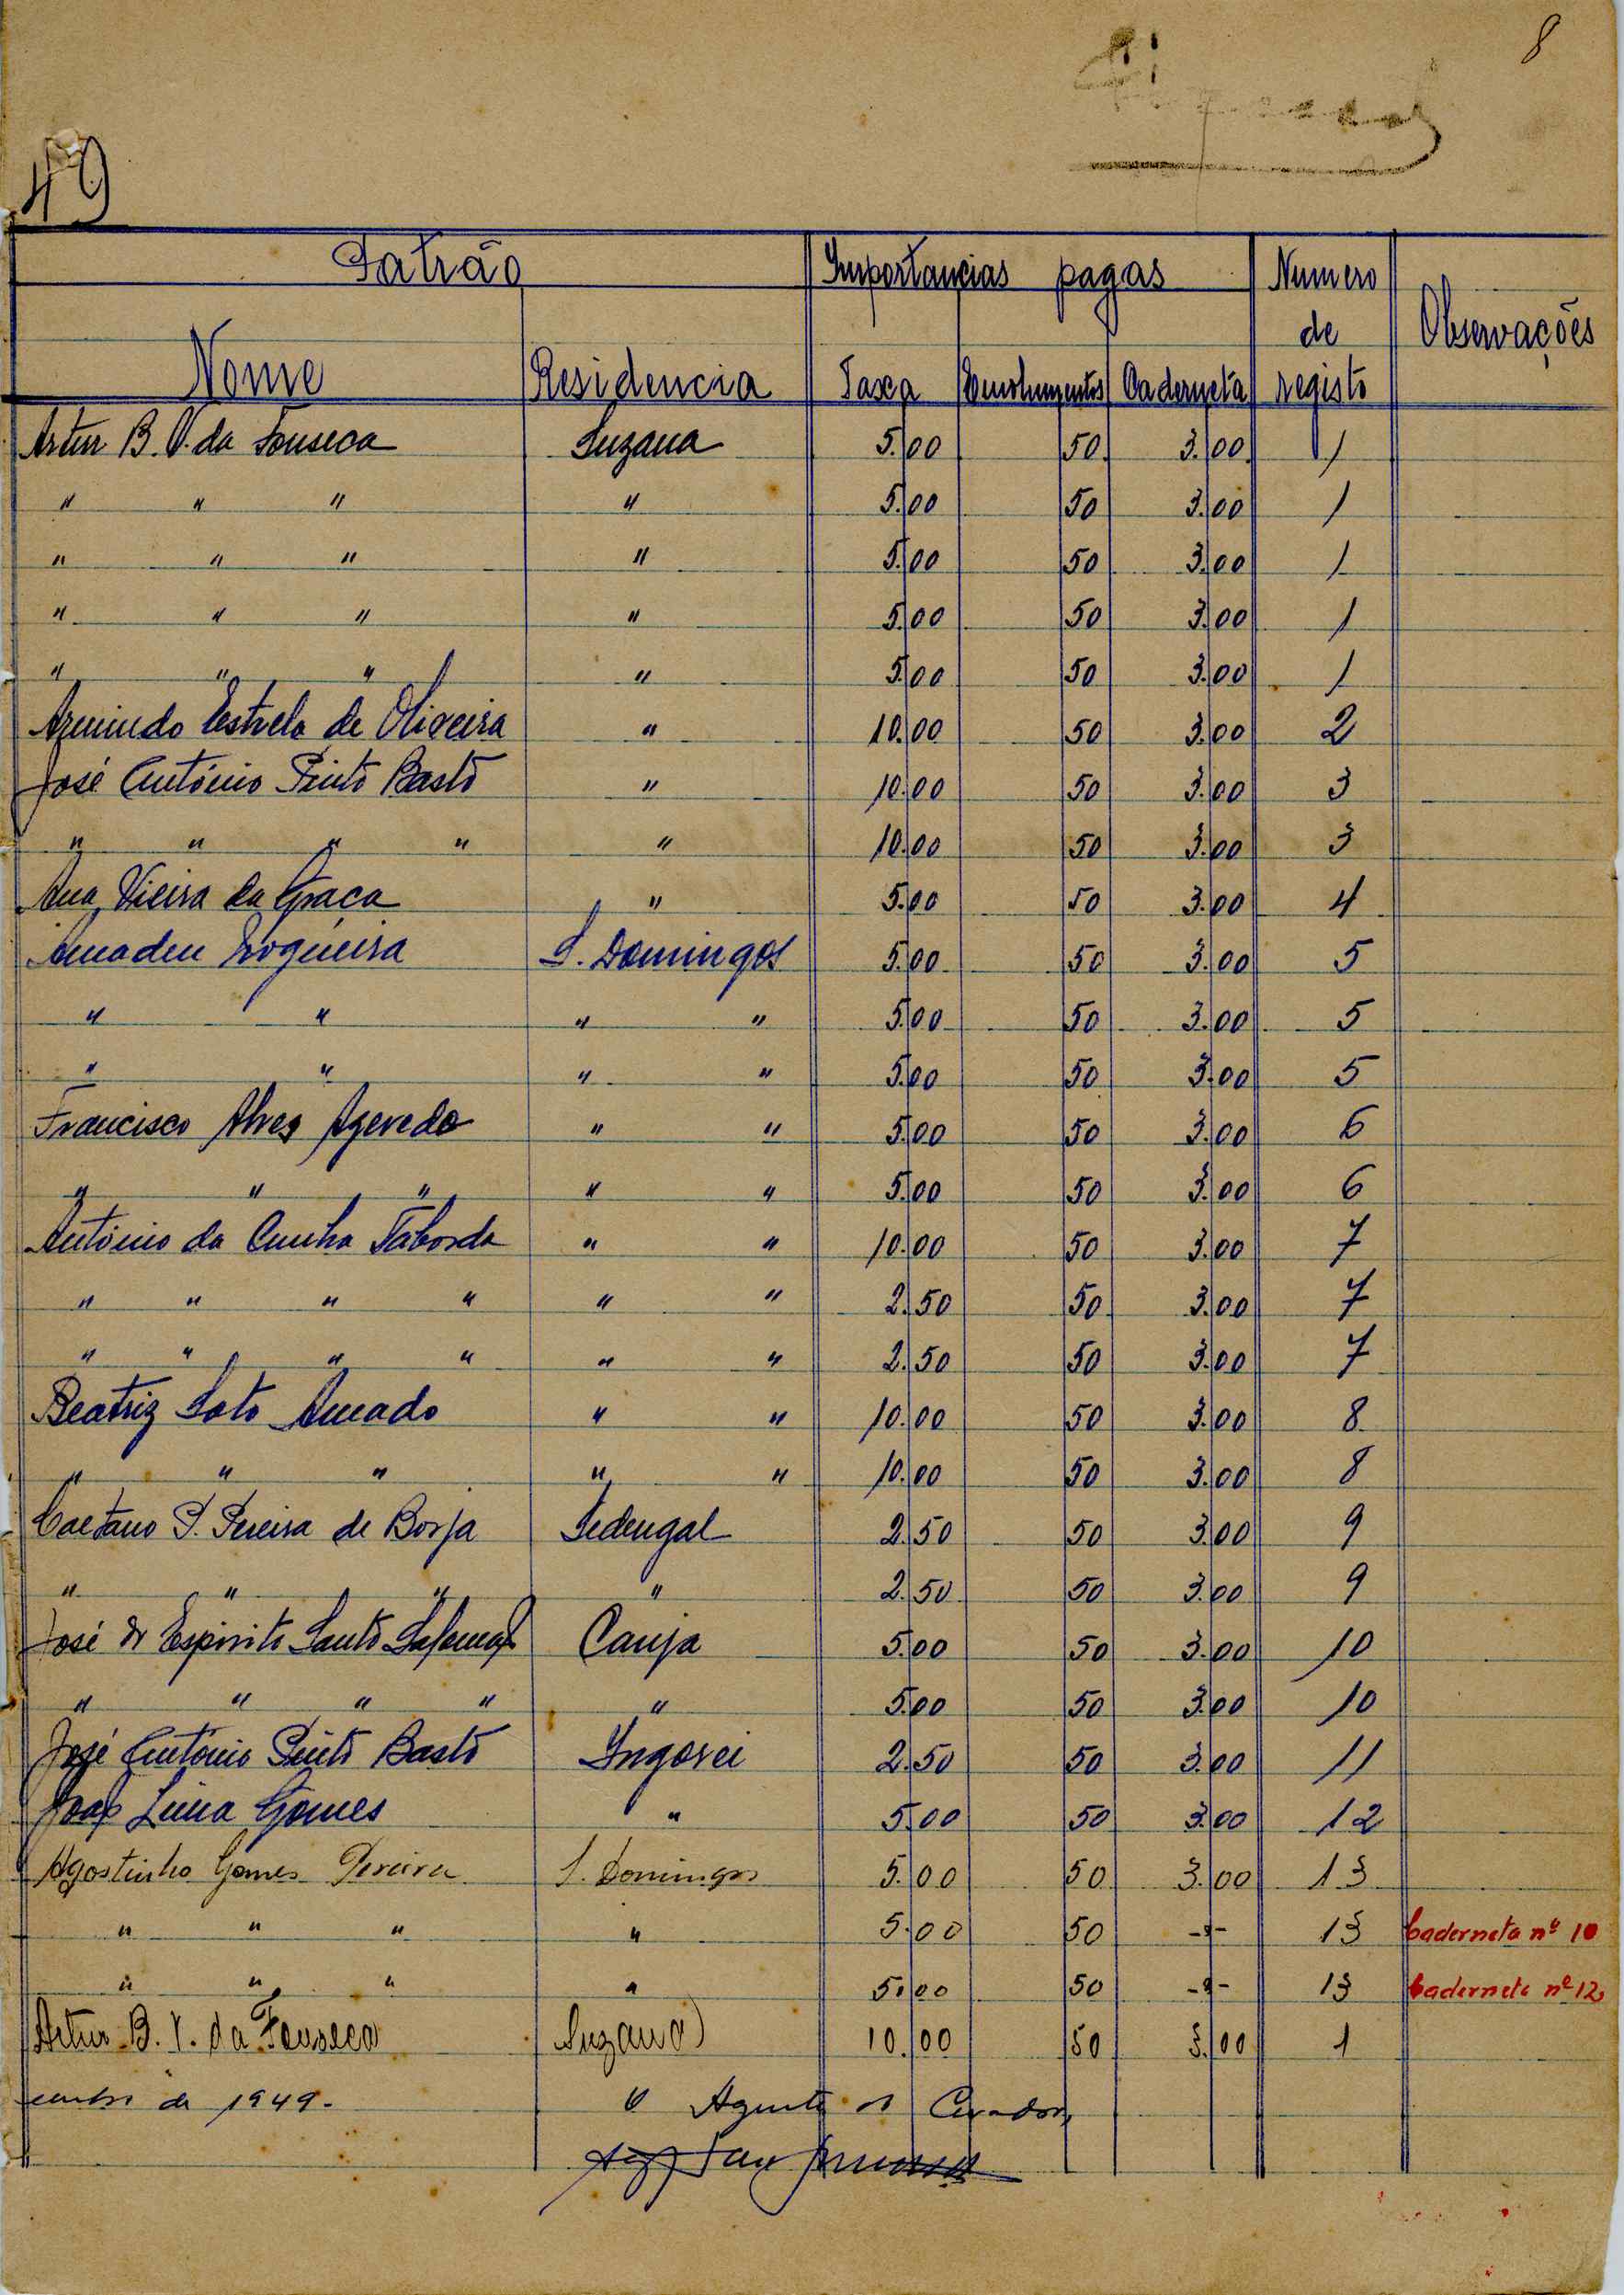 8
49
Patrão Importancias pagas Numero de registo Observações
Nome Residencia Taxa Emolumentos Caderneta
Artur B. V. da Fonseca Suzana 5.00 50 3.00 1
" " " " 5.00 50 3.00 1
" " " " 5.00 50 3.00 1
" " " " 5.00 50 3.00 1
" " " " 5.00 50 3.00 1
Armindo Estrela de Oliveira " 10.00 50 3.00 2
José António Pinto Basto " 10.00 50 3.00 3
" " " " " 10.00 50 3.00 3
Ana Vieira da Graça " 5.00 50 3.00 4
Amadeu Nogueira S. Domingos 5.00 50 3.00 5
" " " " 5.00 50 3.00 5
" " " " 5.00 50 3.00 5
Francisco Alves Azevedo " " 5.00 50 3.00 6
" " " " " 5.00 50 3.00 6
António da Cunha Taborda " " 10.00 50 3.00 7
" " " " " " 2.50 50 3.00 7
" " " " " " 2.50 50 3.00 7
Beatriz Soto Amado " " 10.00 50 3.00 8
" " " " " 10.00 50 3.00 8
Caetano P. Pereira de Borja Sedengal 2.50 50 3.00 9
" " " " 2.50 50 3.00 9
José do Espirito Santo Canja 5.00 50 3.00 10
" " " " " 5.00 50 3.00 10
José António Pinto Basto Ingorei 2.50 50 3.00 11
João Lima Gomes " 5.00 50 3.00 12
Agostinho Gomes Pereira S. Domingos 5.00 50 3.00 13
" " " " 5.00 50 -"- 13 Caderneta nº 10
" " " " 5.00 50 -"- 13 Caderneta nº 12
Artur B. V. da Fonseca Suzana 10.00 50 3.00 1
embro de 1949. O Agente do Curador,